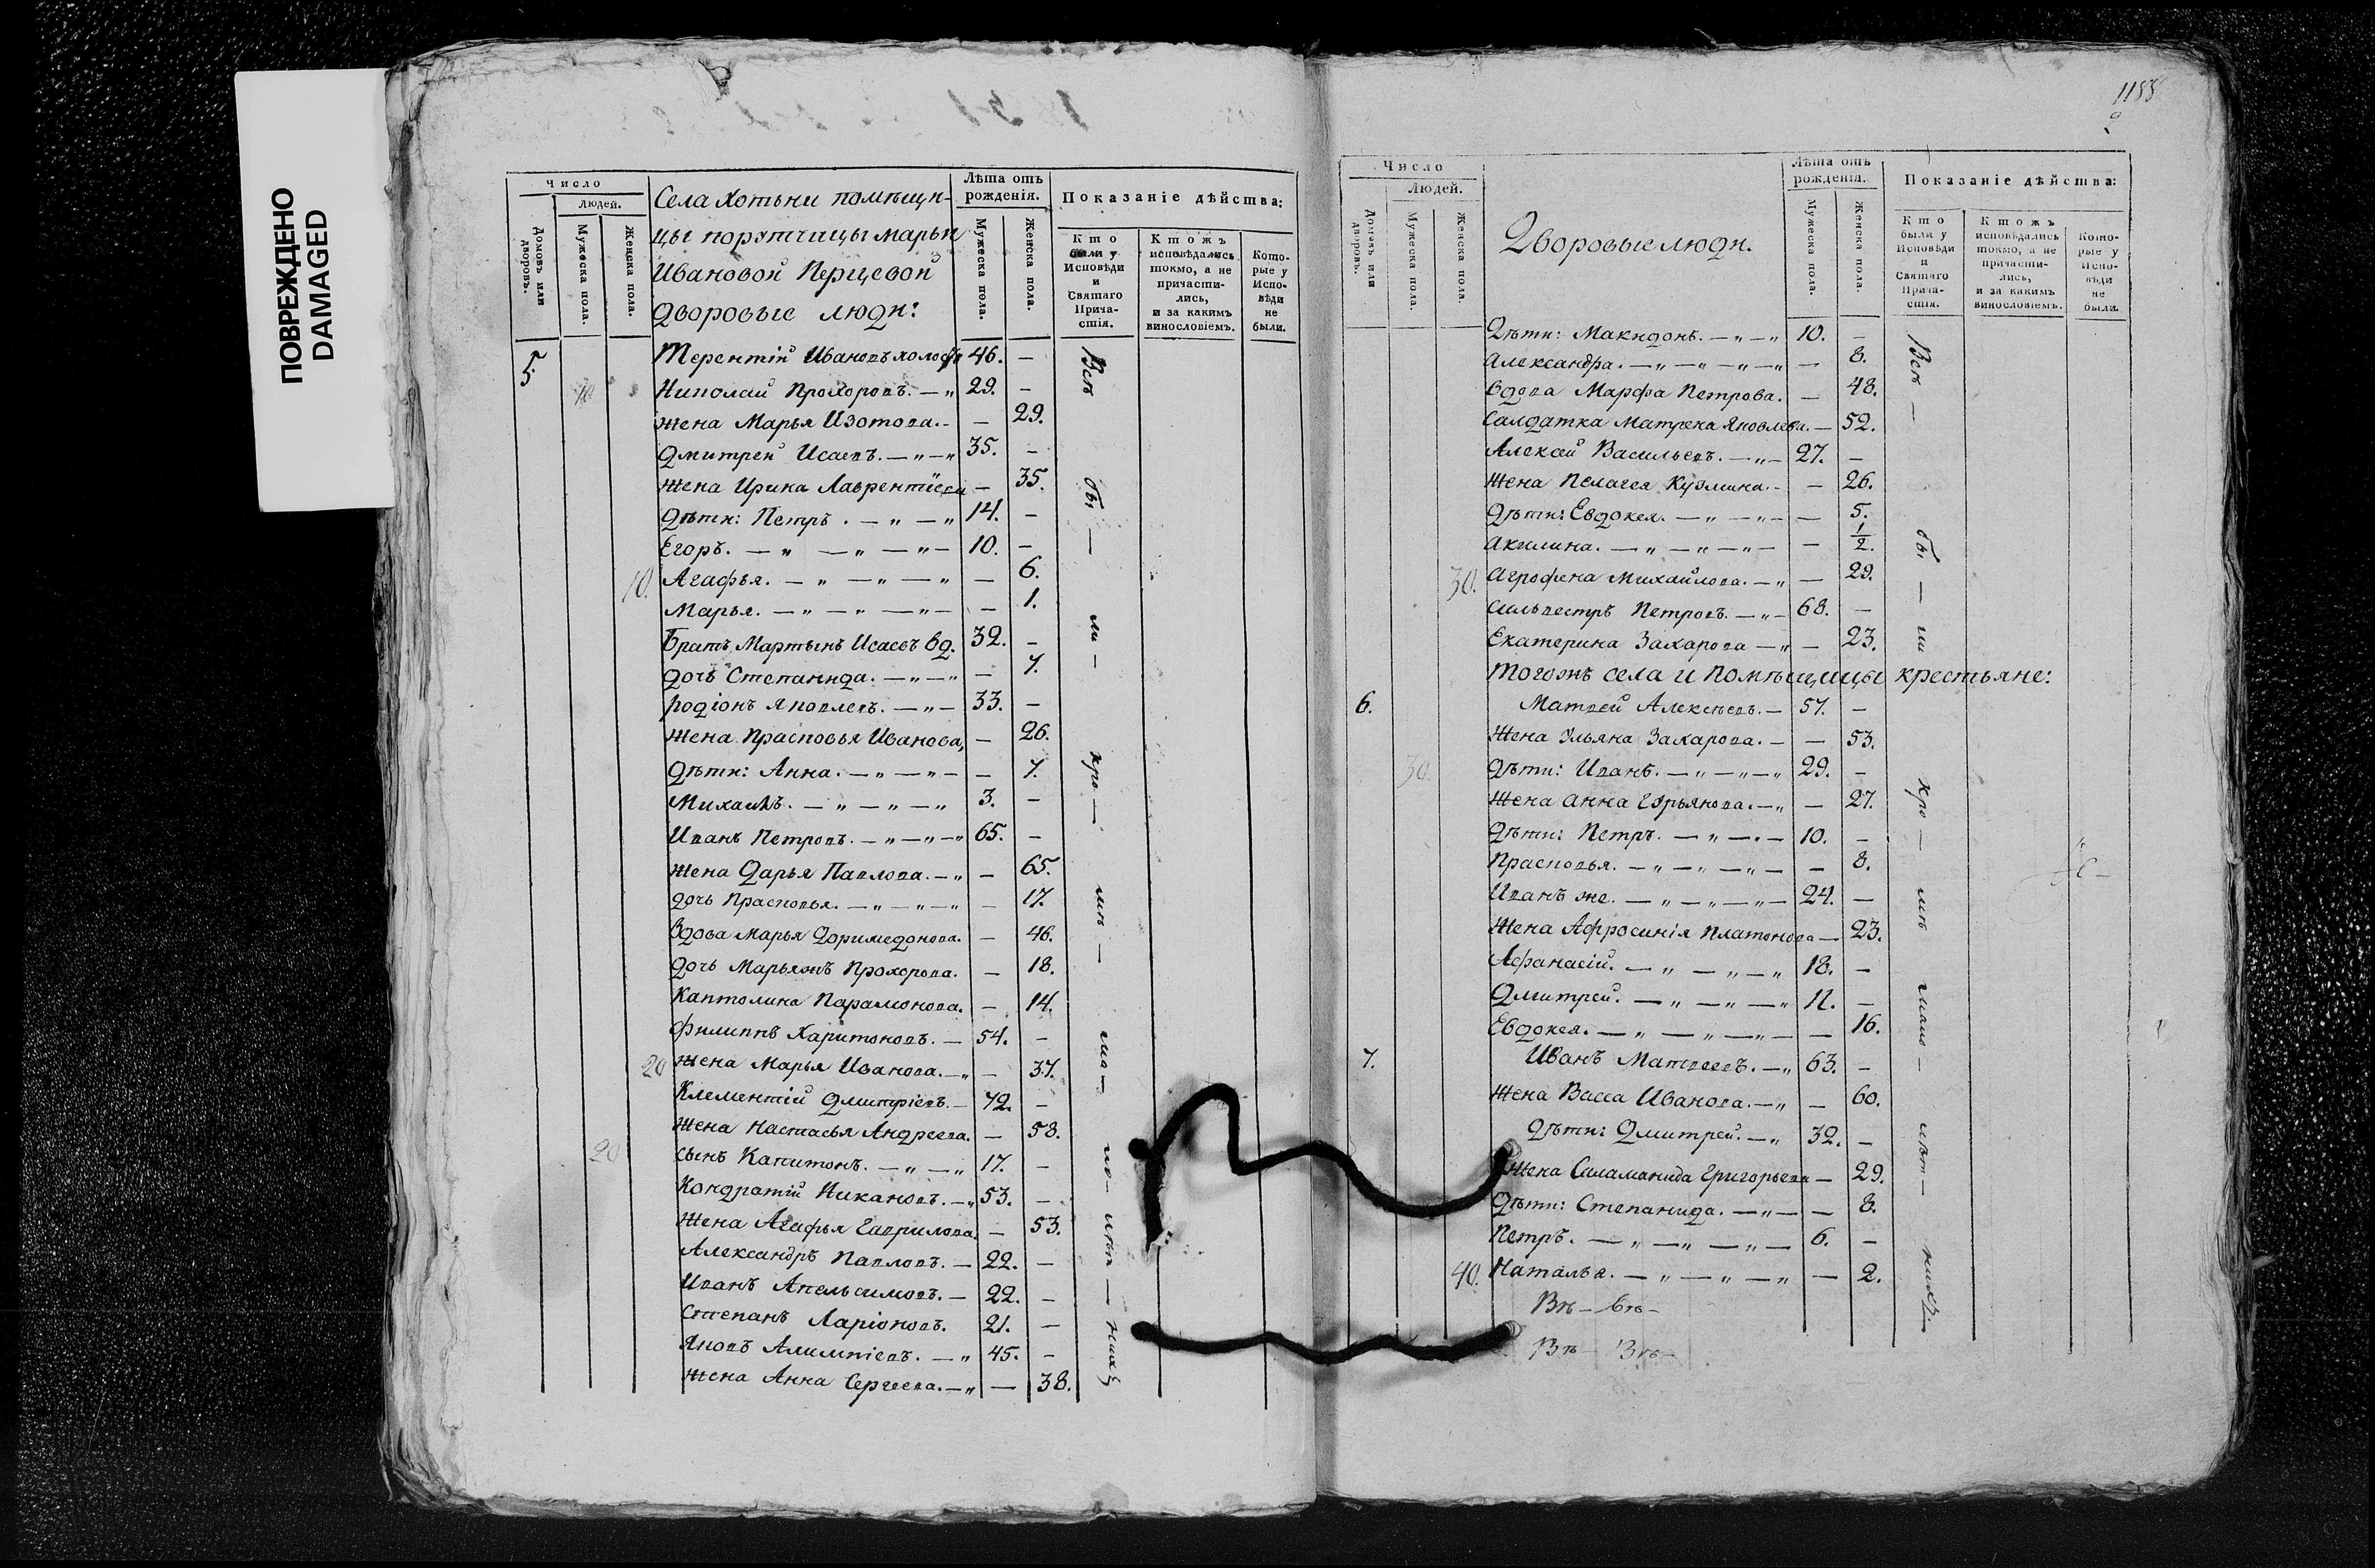 ПОВРЕЖДЕНО
DAMAGED
Число
Людей.
Домовъ или дворовъ.
Мужеска пола.
Женска пола.
Села Хотьни помѣщи-
цы порутчицы Марьи
Ивановой Перцевой
Дворовые люди:
Лѣта отъ рожденія.
Мужеска пола.
Женска пола.
Показаніе дѣйства:
Кто были у Исповѣди и Святаго Прича- стія.
Ктожъ исповѣдались токмо, а не причасти- лись, и за какимъ винословіемъ.
Кото- рые у Испо- вѣди не были.
5. Терентій Ивановъ холостъ 46. —
Николай Прохоровъ. — „ 29. —
жена Марья Изотова. - — 29.
Дмитрей Исаевъ. — „ — „ 35. —
жена Ирина Лаврентіева — 35.
Дѣти: Петръ. — „ — „ 14. —
Егоръ. — „ — „ — „ — 10. —
10. Агафья. — „ — „ — „ — 6.
Марья. — „ — „ — „ — — 1.
Братъ Мартынъ Исаевъ вд. 32. —
дочь Степанида. — „ — „ — 7.
Родіонъ Яковлевъ. — „ — 33. —
жена Прасковья Иванова, — 26.
Дѣти: Анна. — „ — „ — — 7.
Михаилъ. — „ — „ — „ 3. —
Иванъ Петровъ. — „ — „ — „ 65. —
жена Дарья Павлова. — „ — 65.
дочь Прасковья. — „ — „ — „ — 17.
Вдова Марья Доримедонова. — 46.
дочь Марьяжъ Прохорова. — 18.
Каптолина Парамонова. — 14.
Филиппъ Харитоновъ. — 54. —
20 жена Марья Иванова. — „ — 37.
Клементій Дмитріевъ. — 72. —
жена Настасья Андреева. — 58.
20 сынъ Капитонъ. — „ — „ 17. —
Кондратій Никановъ. — „ 53. —
жена Агафья Гаврилова. — 53.
Александръ Павловъ. — 22. —
Иванъ Анельсимовъ. — 22. —
Степанъ Ларіоновъ. 21. —
Яковъ Алимпіевъ. — „ 45. —
жена Анна Сергеева. — „ — 38.
Всѣ бы — ли — кро — мѣ — ма —
1188
2
Число
Людей.
Домовъ или дворовъ.
Мужеска пола.
Женска пола.
Дворовые люди.
Лѣта отъ рожденія.
Мужеска пола.
Женска пола.
Показаніе дѣйства:
Кто были у Исповѣди и Святаго Прича- стія.
Ктожъ исповѣдались токмо, а не причасти- лись, и за какимъ винословіемъ.
Кото- рые у Испо- вѣди не были.
Дѣти: Макидонъ. — „ — „ 10. —
Александра. — „ — „ — „ — „ — 8.
вдова Марфа Петрова. — 48.
Салдатка Матрена Яковлева. — 52.
Алексѣй Васильевъ. — „ — 27. —
жена Пелагея Кузмина. - — 26.
Дѣти: Евдокея. — „ — „ — — 5.
Акилина. — „ — „ — „ — — 1/2.
30. Агрофена Михаилова. — „ — 29.
Сильвестръ Петровъ. — „ — 68. —
Екатерина Захарова — „ — 23.
Тогожъ села и помѣщицы крестьяне:
6. Матвей Алексѣевъ. — 57. —
жена Ульяна Захарова. — — 53.
30. Дѣти: Иванъ. — „ — „ — „ 29. —
жена Анна Гурьянова. — „ — 27.
Дѣти: Петръ. — „ — „ — 10. —
Прасковья. — „ — „ — „ — — 8.
Иванъ же. — „ — „ — „ — 24. —
жена Афросинія Платонова — 23.
Афанасій. — „ — „ — „ 18. —
Дмитрей. — „ — „ — „ 11. —
Евдокея. — „ — „ — „ — — 16.
7. Иванъ Матвеевъ. — „ 63. —
жена Васса Иванова. — „ — 60.
Дѣти: Дмитрей. — „ 32. —
жена Саламанида Григорьева — 29.
Дѣти: Степанида. — „ — — 8.
Петръ. — „ — „ — „ — 6. —
40. Наталья. — „ — „ — „ — 2.
Всѣ — бы — ли кро — мѣ мало — лѣт — нихъ